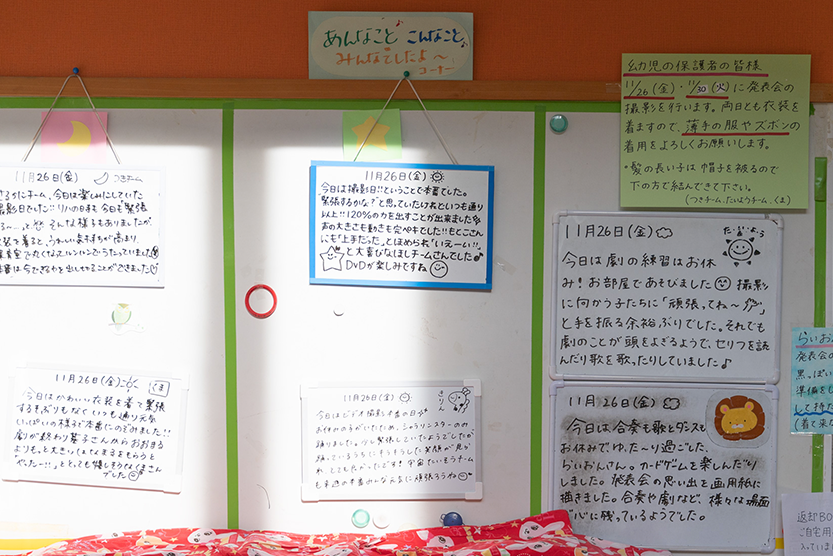 あんなこと♪こんなこと♪
みんなでしたよ〜
コーナー
幼児の保護者の皆様
11/26(金)・11/30(火)に発表会の
撮影を行います。両日とも衣装を
着ますので、薄手の服やズボンの
着用をよろしくお願いします。
・髪の長い子は帽子を被るので
下の方で結んできて下さい。
(つきチーム.たいようチーム.くま)
11月26日(金) つきチーム
今日は楽しみにしていた
リハの日も今日も"緊張
そんな様子もありましたが、
11月26日(金)
今日は撮影日!!ということで本番でした。
"緊張するかな?"と思っていたけれどいつも通り
以上!!120%の力を出すことが出来ました
声の大きさも動きも完ペキでした!!もとこさん
にも「上手だった」とほめられ"いえーい!!"
と大喜びなほしチームさんでした♪
DVDが楽しみですね
11月26日(金) たいよう
今日は劇の練習はお休
み!お部屋であそびました 撮影
に向かう子たちに「頑張ってね〜」
と手を振る余裕ぶりでした。それでも
劇のことが頭をよぎるようで、セリフを読
んだり歌を歌ったりしていました♪
11月26日(金) くま
今日はかわいい衣装を着て緊張
するそぶりもなくいつも通り元気
いっぱいの様子で本番にのぞみました!!
劇が終わり
よりもっと大きい
でした
11月26日(金) きりん
今日はビデオ撮影本番の日
お休みの子がいたため、
踊りました。少し緊張していたようでしたが
踊っているうちに
11月26日(金)
今日は合奏も歌とダンスも
お休みで、ゆったり過ごした、
らいおんさん。カードゲームを楽しんだり
しました。発表会の思い出を画用紙に
描きました。合奏や劇など、様々な場面
が心に残っているようでした。
らいおん
発表会の
黒っぽい
準備をし
して持た
(着て来
返却BO
ご自宅用
入ってい